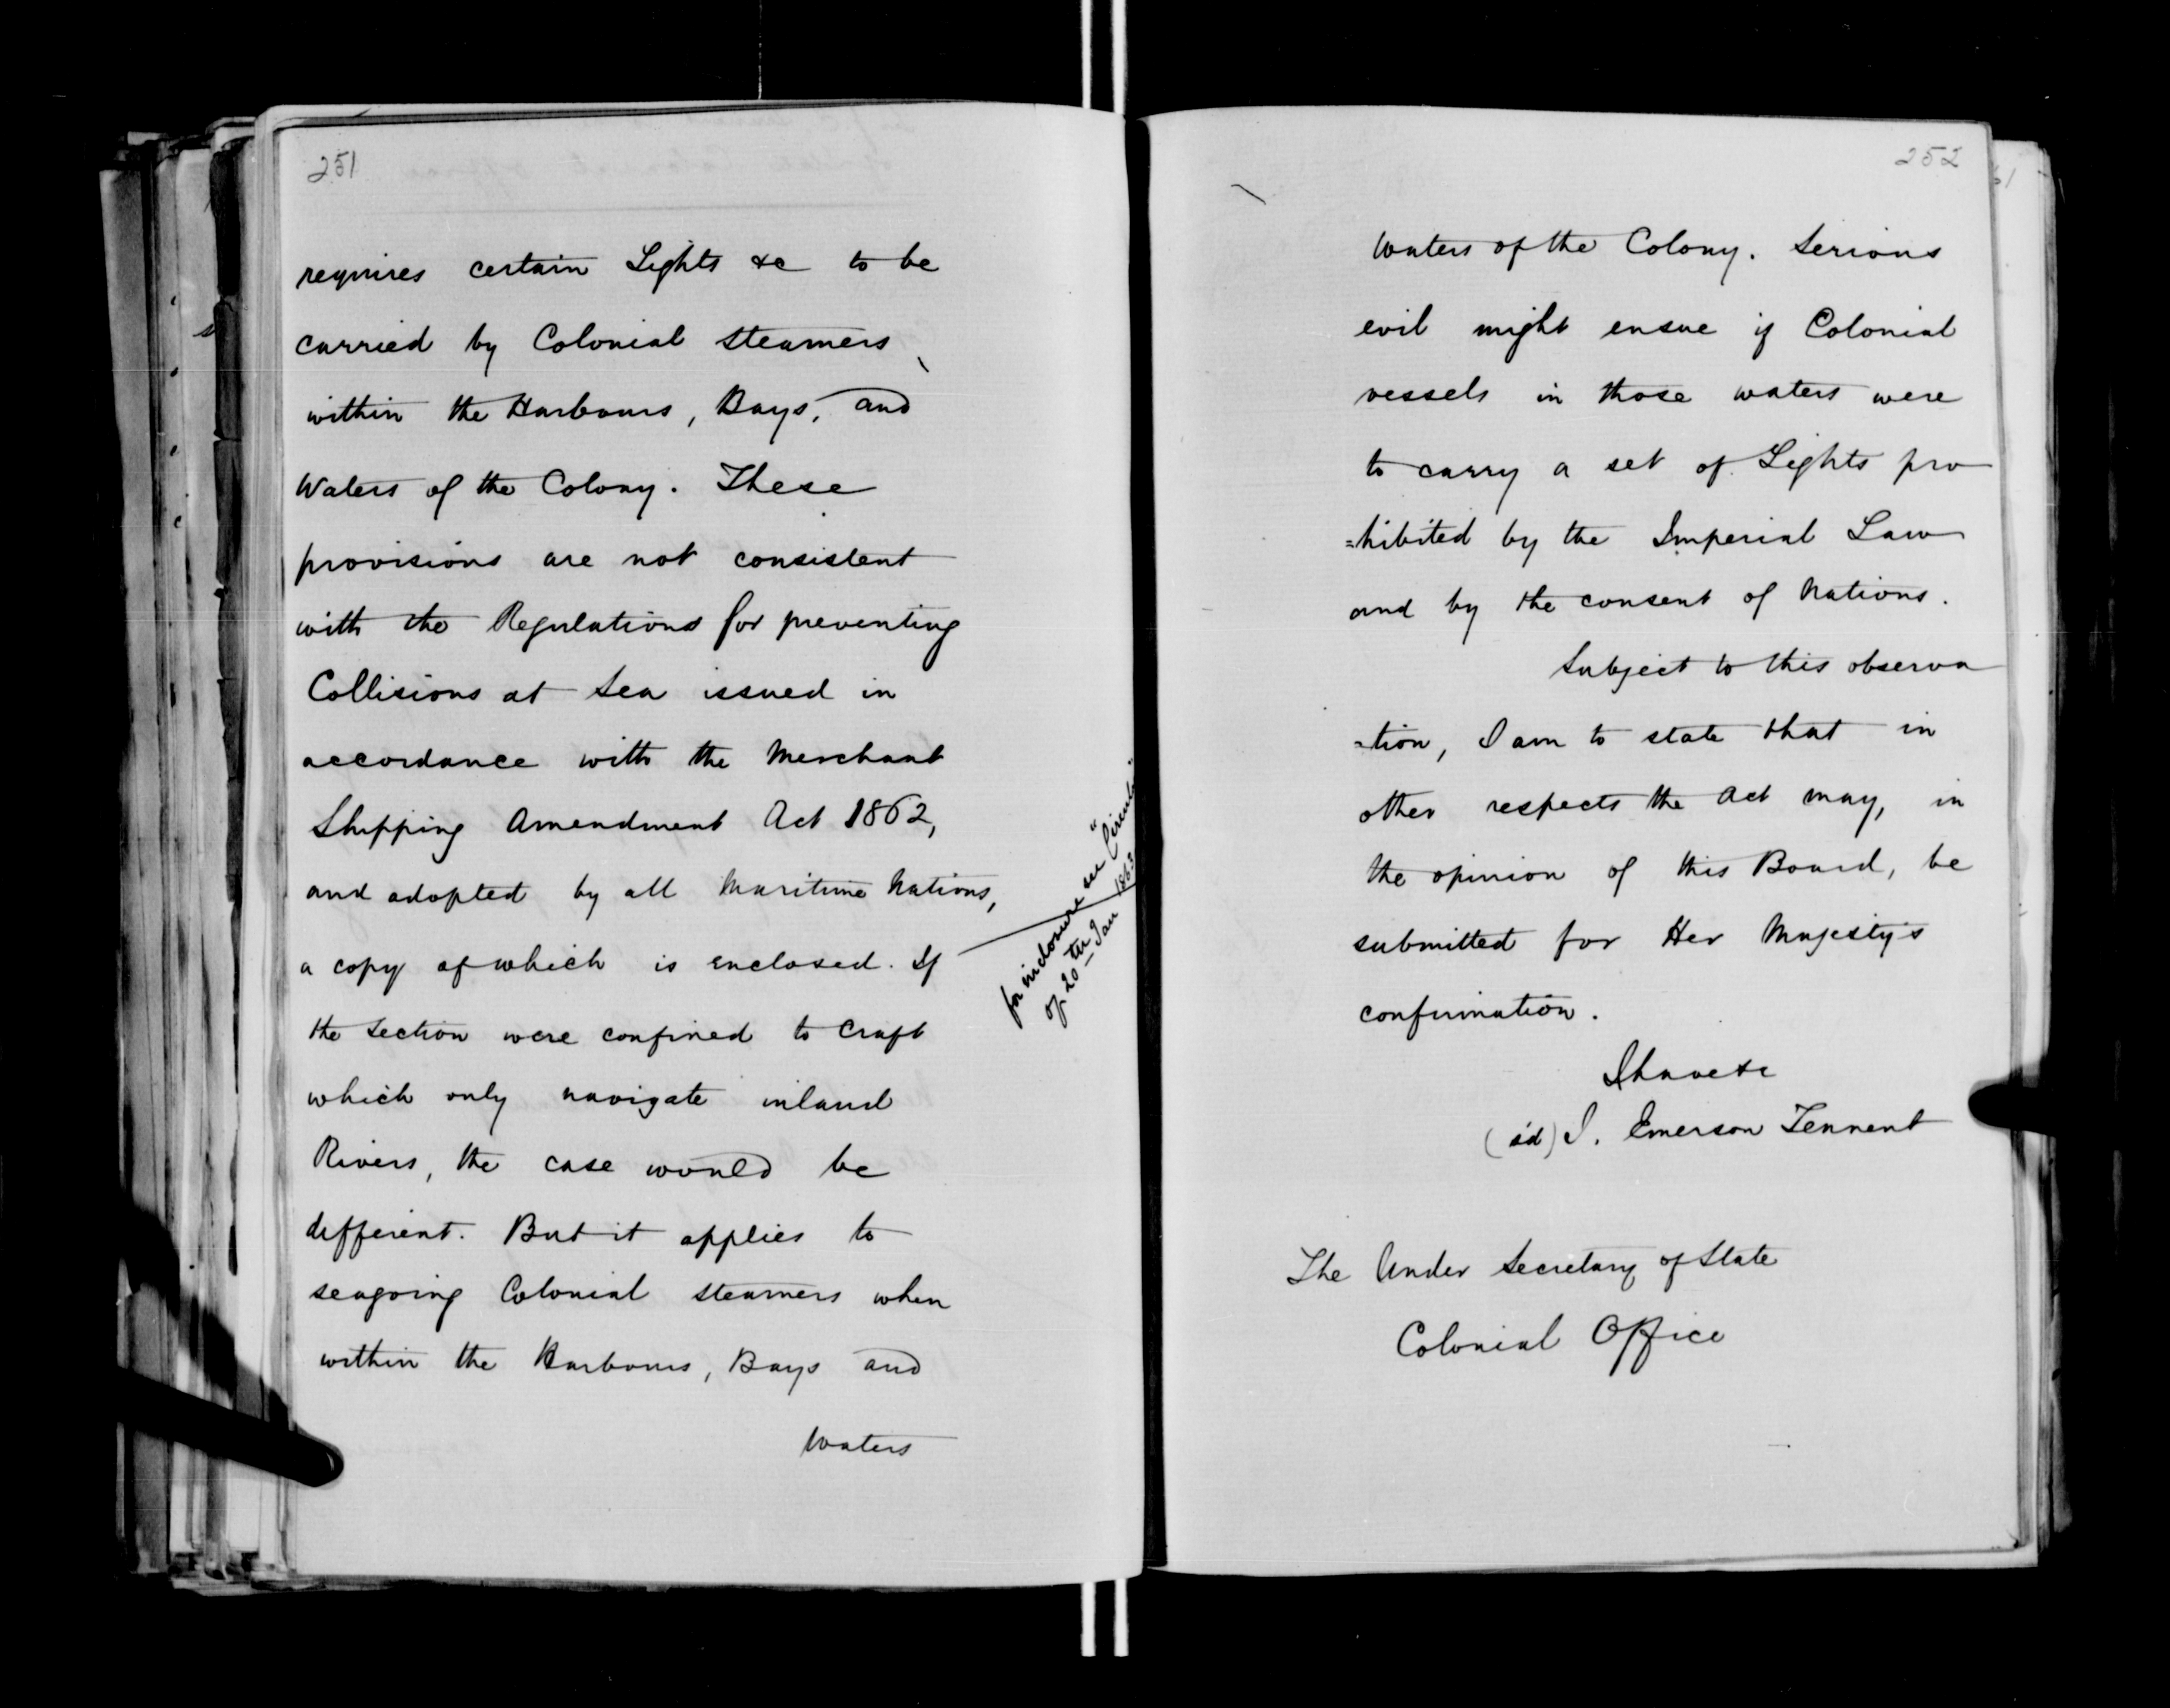 251
requires certain Lights &c to be
carried by Colonial Steamers
within the Harbours, Bays, and
Waters of the Colony. These
provisions are not consistent
with the Regulations for preventing
Collisions at Sea issued in
accordance with the Merchant
Shipping Amendment Act 1862,
and adopted by all Maritime Nations,
a copy of which is enclosed. If
the Section were confined to Craft
which only navigate inland
Rivers, the case would be
different. But it applies to
seagoing Colonial Steamers when
within the Harbours, Bays and
Waters
for inclosure see "Circular"
of 20th Jan 1863
252
Waters of the Colony. Serious
evil might ensue if Colonial
vessels in those waters were
to carry a set of Lights pro
=hibited by the Imperial Law
and by the consent of Nations.
Subject to this observa
=tion, I am to state that in
other respects the Act may, in
the opinion of this Board, be
submitted for Her Majesty's
confirmation.
I have &c
(sd) J. Emerson Tennent
The Under Secretary of State
Colonial Office